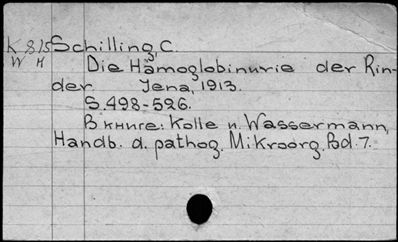 K 815 Schilling, C.
W H Die Hämoglobinurie der Rin-
der Jena, 1913.
S. 498-526.
В книге: Kolle u. Wassermann,
Handb. d. pathog. Mikroorg. Bd. 7.